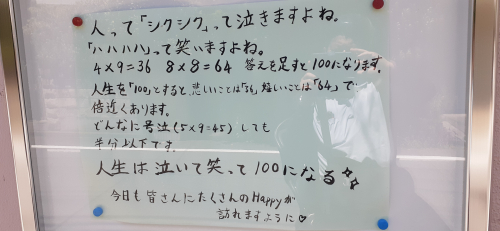 人って「シクシク」って泣きますよね。
「ハハハハ」って笑いますよね。
4×9=36 8×8=64 答えを足すと100になります。
人生を「100」とすると、悲しいことは「36」、嬉しいことは「64」で
倍近くあります。
どんなに号泣(5×9=45)しても
半分以下です。
人生は泣いて笑って100になる
今日も皆さんにたくさんのHappyが
訪れますように♡